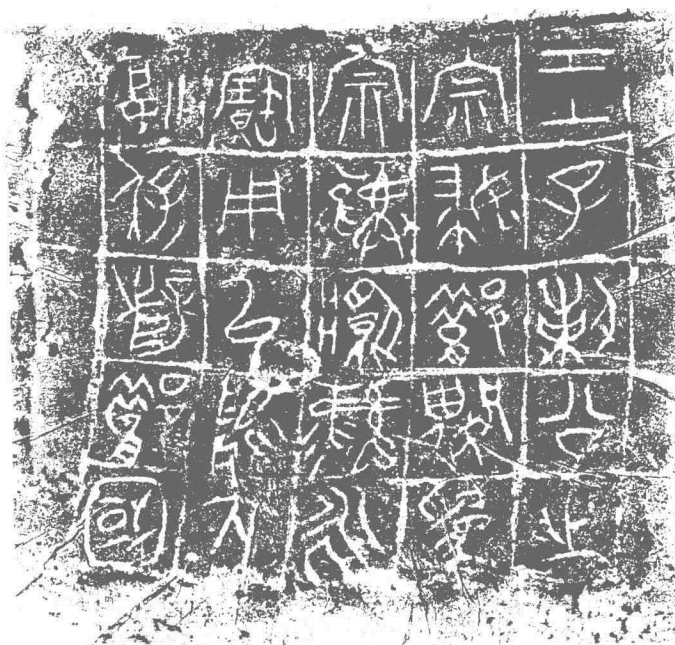 王子剌公之
宗婦𨛭嬰爲
宗彝𩰬彝永
寶用以降大
福保辥𨛭國